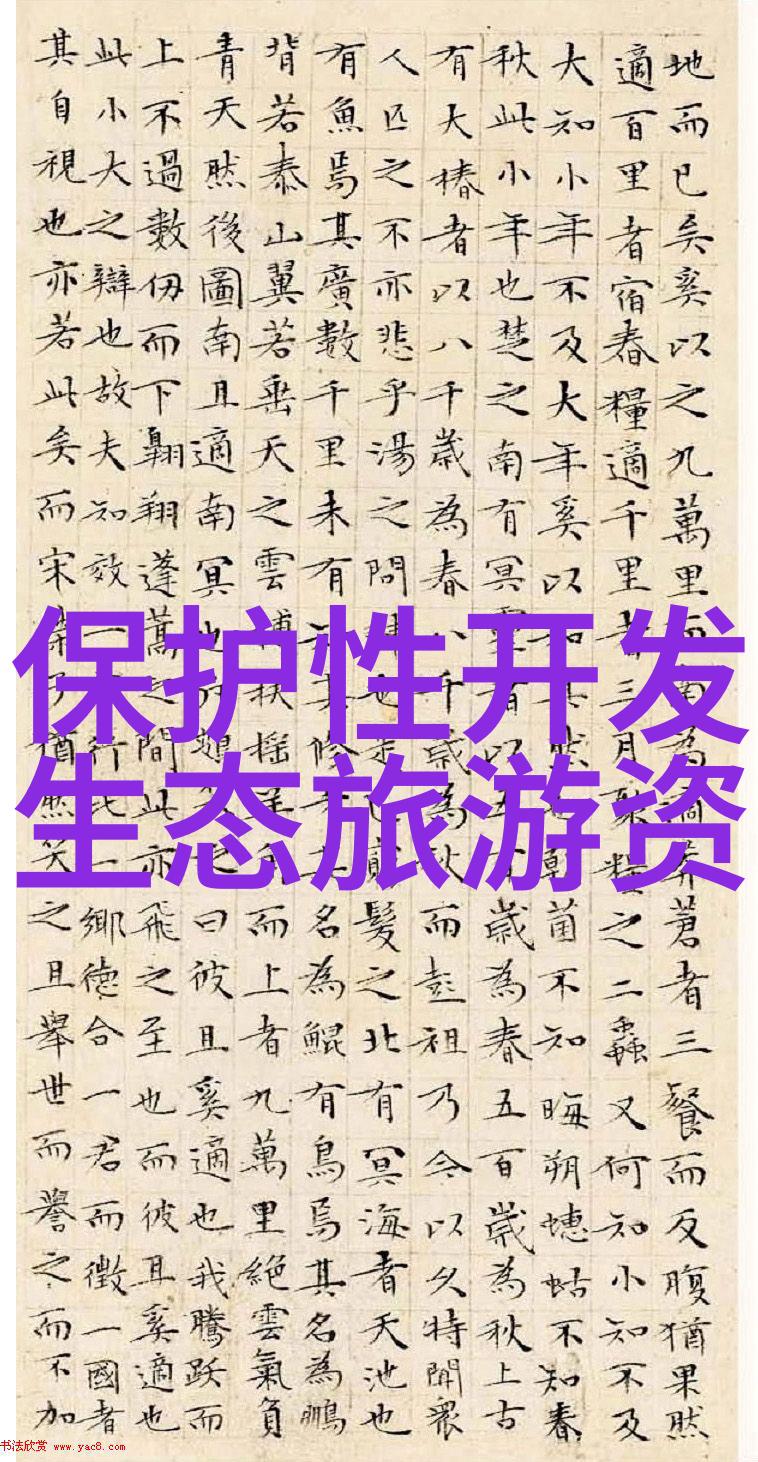 地而已矣奚以之九萬里而南為適莽蒼者三餐而反腹猶果然
適百里者宿舂糧適千里者三月聚糧之二蟲又何知小知不及
大知小年不及大年奚以知其然也朝菌不知晦朔蟪蛄不知春
秋此小年也楚之南有冥靈者以五百歲為春五百歲為秋上古
有大椿者以八千歲為春八千歲為秋而彭祖乃今以久特聞眾
人匹之不亦悲乎湯之問棘也是已窮髮之北有冥海者天池也
有魚焉其廣數千里未有知其修者其名為鯤有鳥焉其名為鵬
背若泰山翼若垂天之雲摶扶搖羊角而上者九萬里絕雲氣負
青天然後圖南且適南冥也斥鴳笑之曰彼且奚適也我騰躍而
上不過數仞而下翱翔蓬蒿之間此亦飛之至也而彼且奚適也
此小大之辯也故夫知效一官行比一鄉德合一君而徵一國者
其自視也亦若此矣而宋榮子猶然笑之且舉世而譽之而不加
保护性开发
生态旅游资
书法欣赏 www.yac8.com